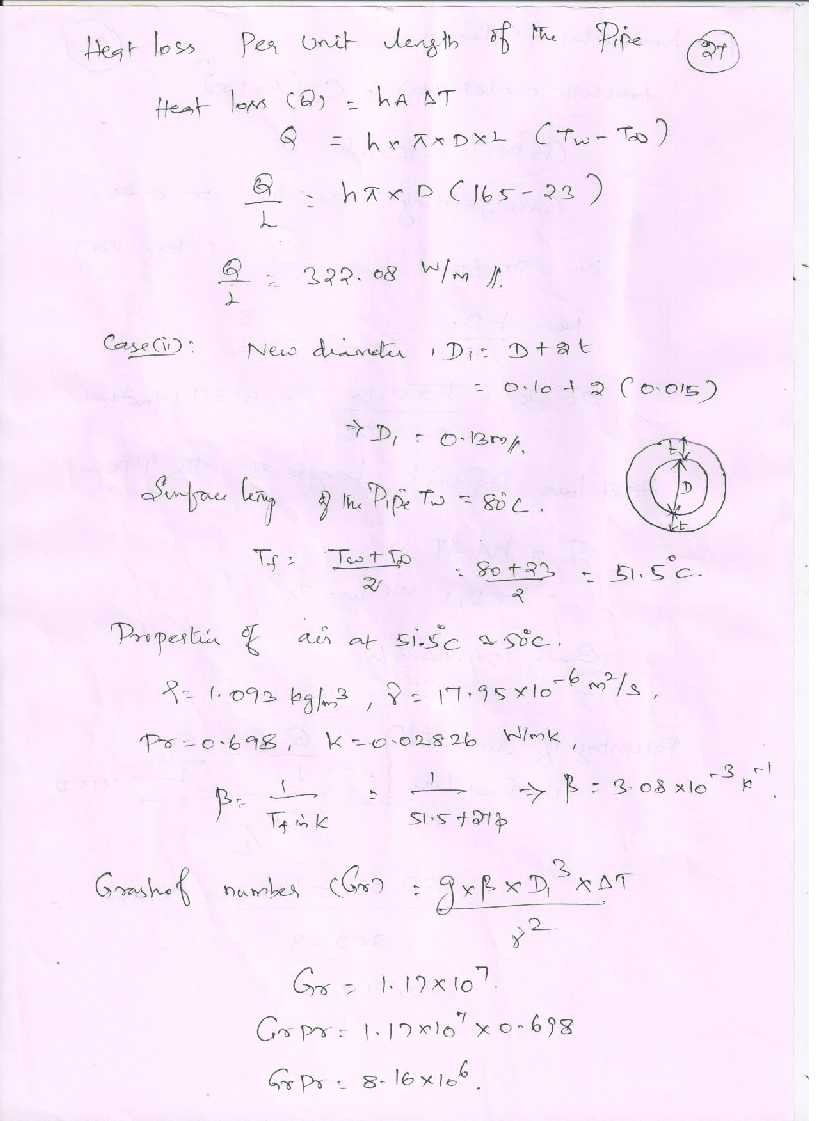 Heat loss Per unit length of the Pipe 27
Heat loss (Q) = hA ΔT
Q = h x π x D x L (Tw - T∞)
Q/L = hπ x D (165 - 23)
Q/L = 322.08 W/m //.
Case(ii): New diameter, D1 = D + 2t
= 0.10 + 2 (0.015)
⇒ D1 = 0.13m//.
t
D
t
Surface temp of the Pipe Tw = 80°C.
Tf = (Tw + T∞)/2 = (80 + 23)/2 = 51.5°C.
Properties of air at 51.5°C ≈ 50°C.
ρ = 1.093 kg/m³, γ = 17.95 x 10⁻⁶ m²/s,
Pr = 0.698, K = 0.02826 W/mK,
β = 1/(Tf in K) = 1/(51.5 + 273) ⇒ β = 3.08 x 10⁻³ K⁻¹.
Grashof number (Gr) = (g x β x D1³ x ΔT)/γ²
Gr = 1.17 x 10⁷.
Gr Pr = 1.17 x 10⁷ x 0.698
Gr Pr = 8.16 x 10⁶.